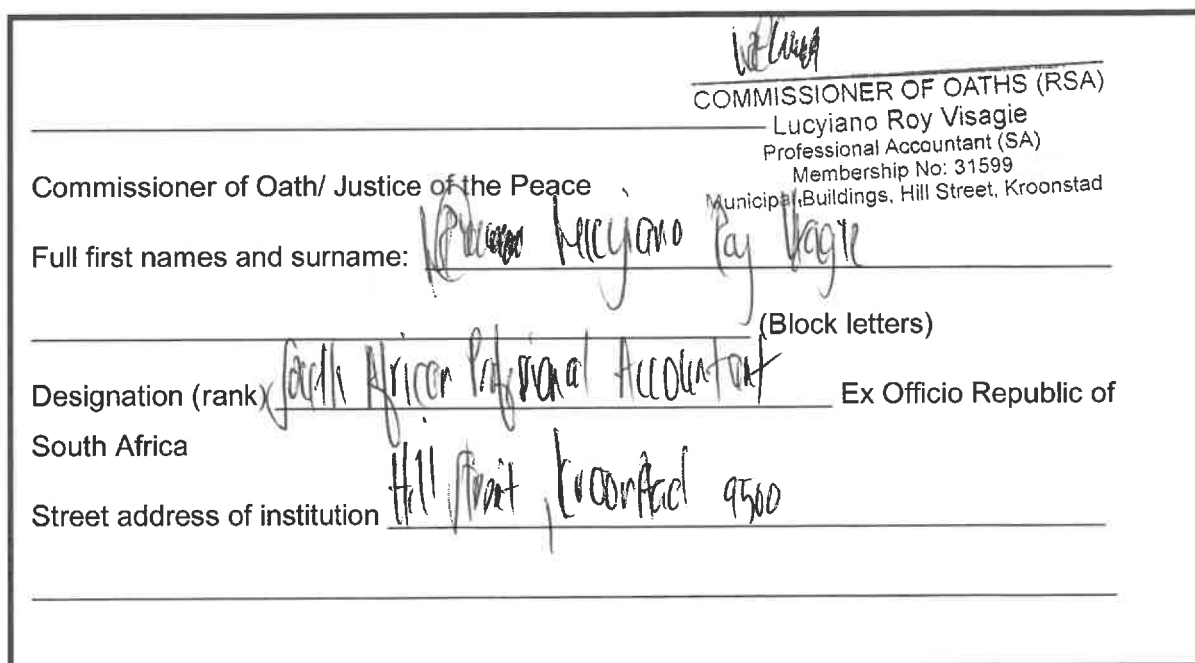 COMMISSIONER OF OATHS (RSA)
Lucyiano Roy Visagie
Professional Accountant (SA)
Membership No: 31599
Municipal Buildings, Hill Street, Kroonstad
Commissioner of Oath/ Justice of the Peace
Full first names and surname: Lucyiano Roy Visagie
(Block letters)
Designation (rank) South African Professional Accountant Ex Officio Republic of
South Africa
Street address of institution Hill Street, Kroonstad 9500